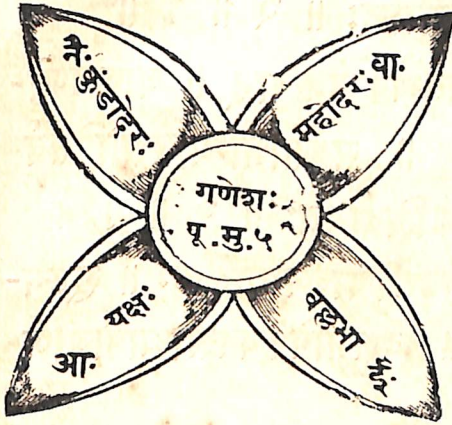 नै· कुंडोदरः
महोदरः वा·
गणेशः
पू. मु. ५
यक्षः
आ·
वल्लभा